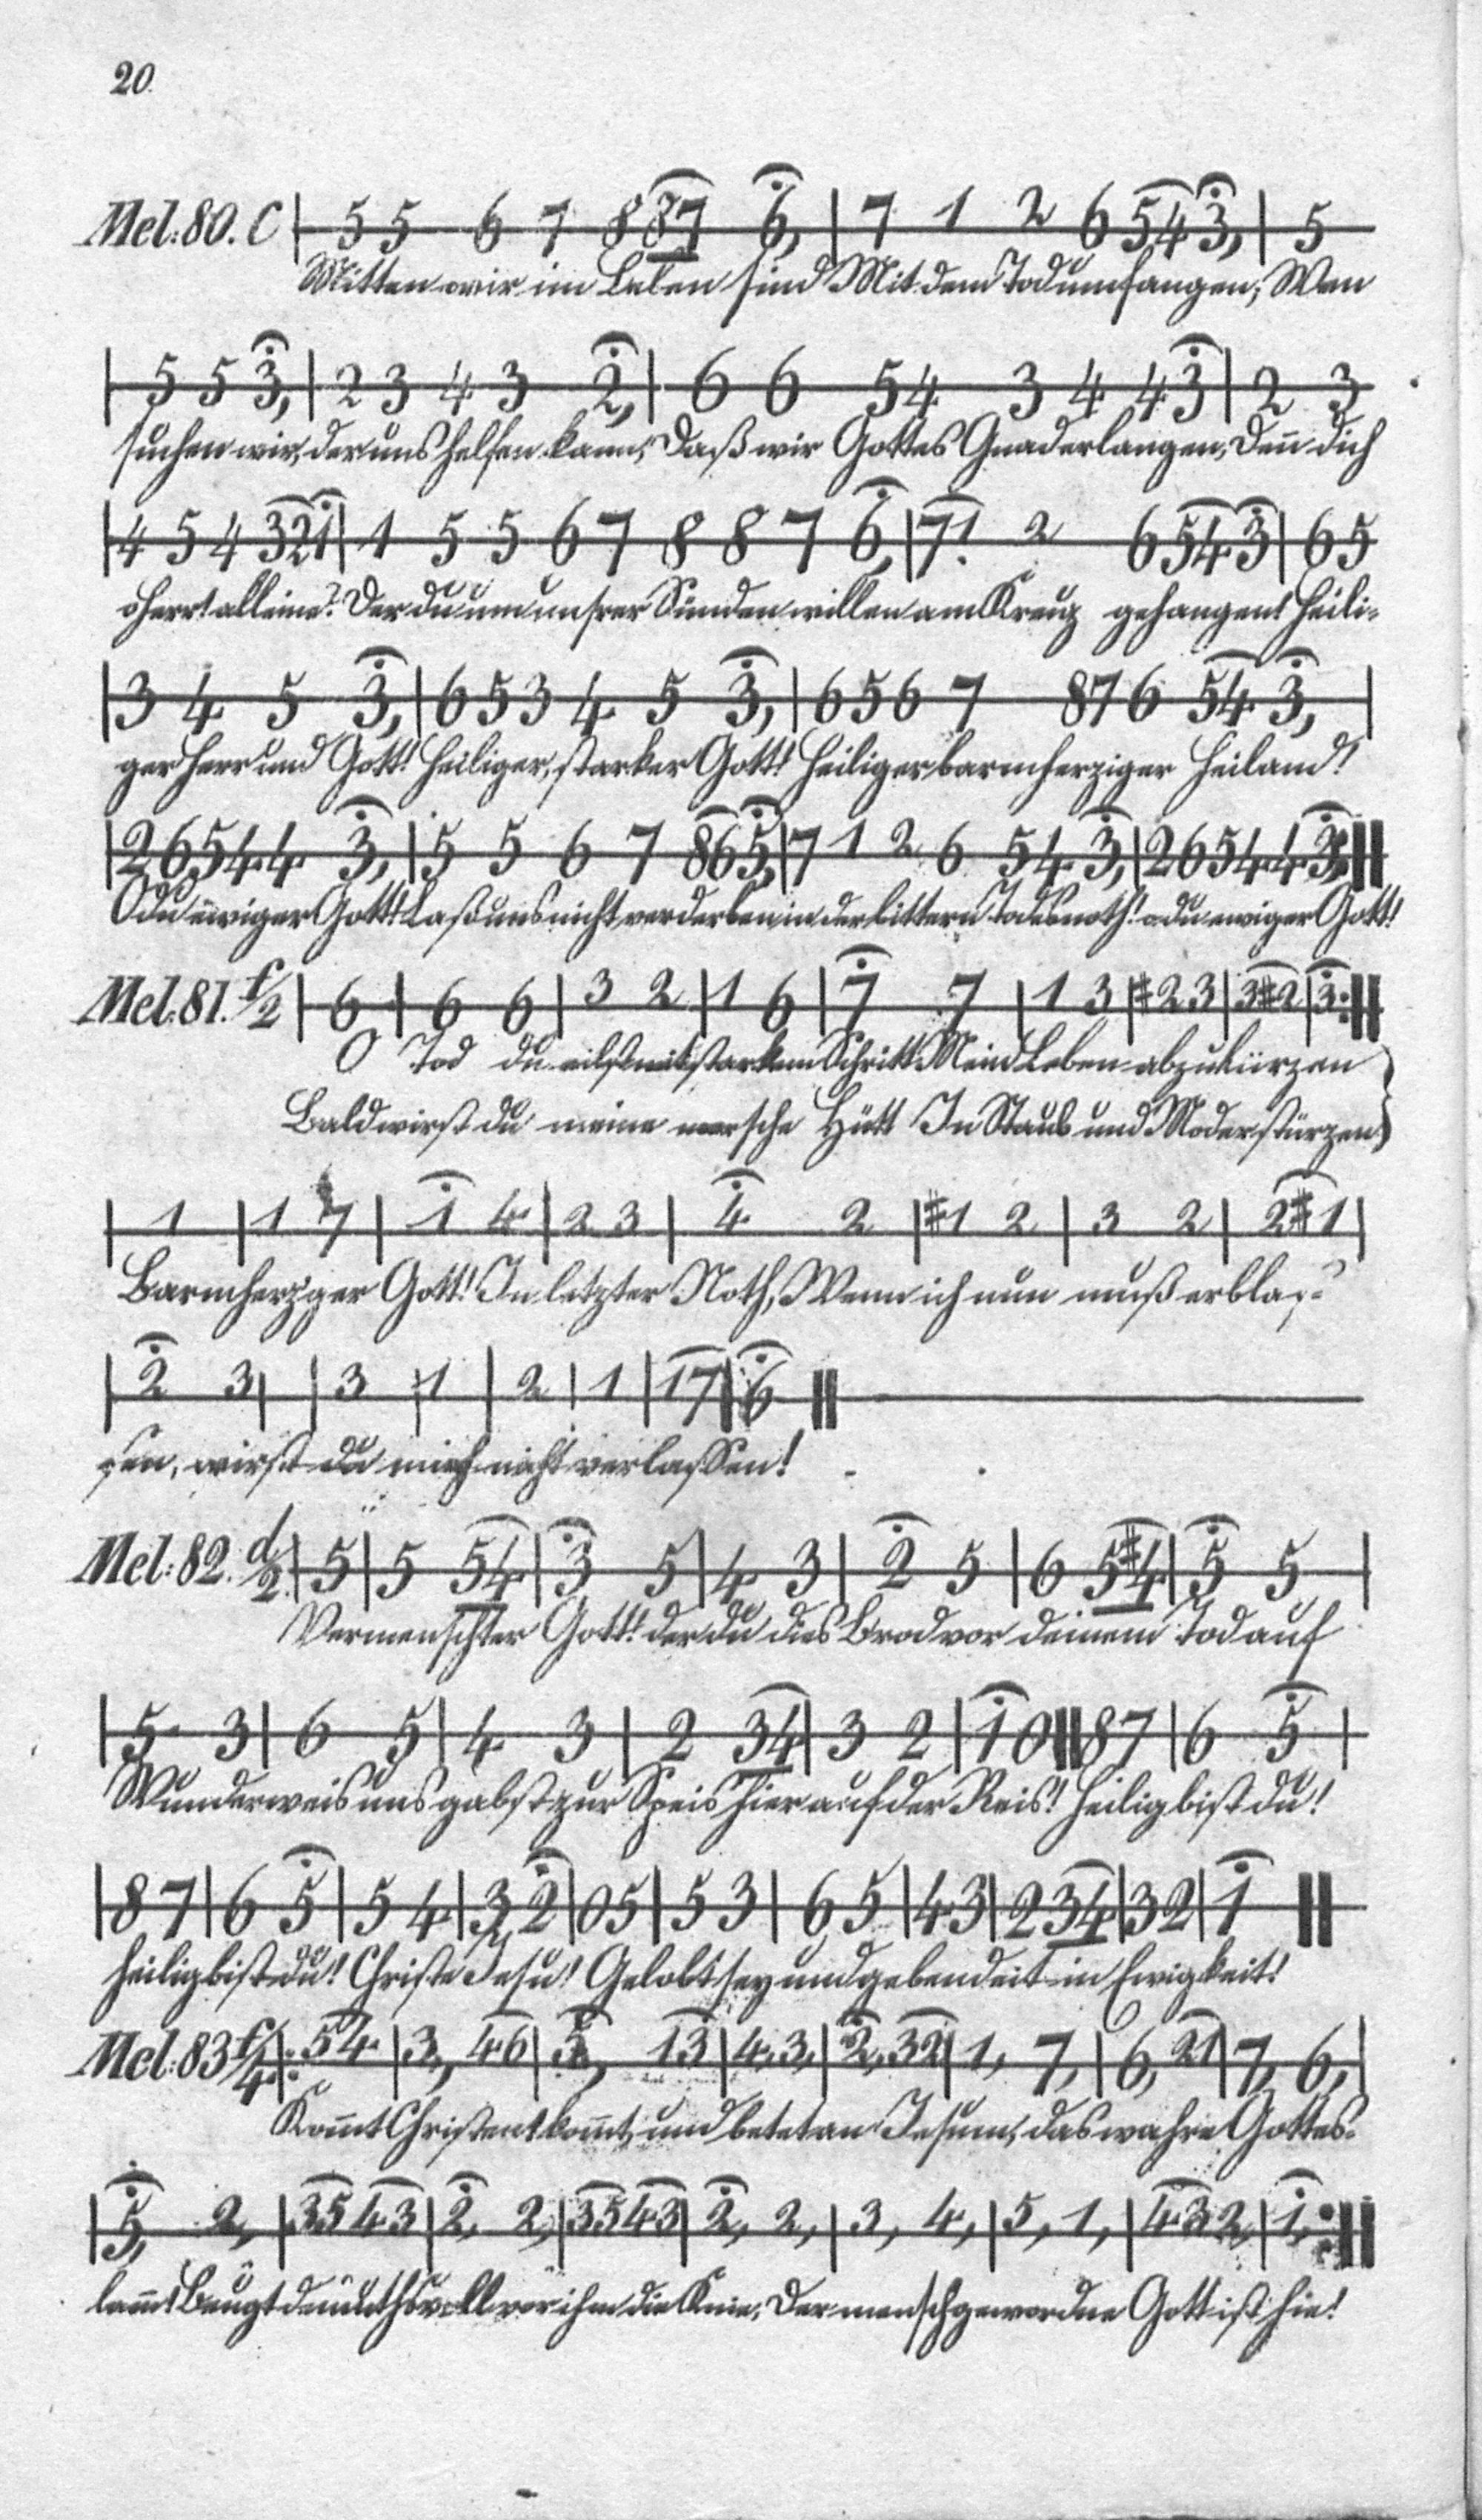 20.
Mel: 80. C | 5 5 6 7 8 87 6, | 7 1 2 6 54 3, | 5
Mitten wir im Leben sind Mit dem Tod umfangen; Wen
| 5 5 3, | 2 3 4 3 2, | 6 6 5 4 3 4 4 3 | 2 3
suchen wir, der uns helfen kann, Daß wir Gottes Gnad erlangen, Den dich
| 4 5 4 321 | 1 5 5 6 7 8 8 7 6, | 7! 2 6 54 3 | 6 5
o Herr! alleine? Der du um unsrer Sünden willen am Kreuz gehangen! Heili-
| 3 4 5 3, | 6 5 3 4 5 3, | 6 5 6 7 8 7 6 54 3, |
ger Herr und Gott! Heiliger, starker Gott! Heiliger barmherziger Heiland!
| 2 6 5 4 4 3, | 5 5 6 7 86 5, | 7 1 2 6 5 4 3, | 2 6 5 4 4 3, ||
O du ewiger Gott! Laß uns nicht verderben in der bittern Todesnoth! o du ewiger Gott!
Mel: 81. f/2 | 6 | 6 6 | 3 2 | 1 6 | 7 7 | 1 3 | #2 3 | 3#2 | 3 :||
O Tod du eilst mit starkem Schritt Mein Leben abzukürzen
Bald wirst du meine morsche Hütt In Staub und Moder stürzen }
| 1 | 1 7 | 1 4 | 2 3 | 4 2 | #1 2 | 3 2 | 2#1 |
Barmherz'ger Gott! In letzter Noth, Wenn ich nun muß erblas-
| 2 3 | | 3 1 | 2 | 1 | 17 | 6 ||
sen, wirst du mich nicht verlassen!
Mel: 82. d/2 | 5 | 5 54 | 3 5 | 4 3 | 2 5 | 6 5#4 | 5 5 |
Vermenschter Gott! der du dies Brod vor deinem Tod auf
| 5 3 | 6 5 | 4 3 | 2 34 | 3 2 | 1 0 || 8 7 | 6 5 |
Wunderweis uns gabst zur Speis hier auf der Reis! Heilig bist du!
| 8 7 | 6 5 | 5 4 | 3 2 | 0 5 | 5 3 | 6 5 | 4 3 | 2 34 | 3 2 | 1 ||
Heilig bist du! Christe Jesu! Gelobt sey und gebendeit in Ewigkeit!
Mel: 83 f/4 |: 54 | 3, 46 | 5, 13 | 4, 3, | 2, 32 | 1, 7, | 6, 21 | 7, 6, |
Komt Christen! komt, und betet an Jesum, das wahre Gottes-
| 5, 2, | 35 43 | 2, 2, | 35 43 | 2, 2, | 3, 4, | 5, 1, | 43 2, | 1, :||
lam! Beugt demuthsvoll vor ihm die Knie, Der menschgewordne Gott ist hie!